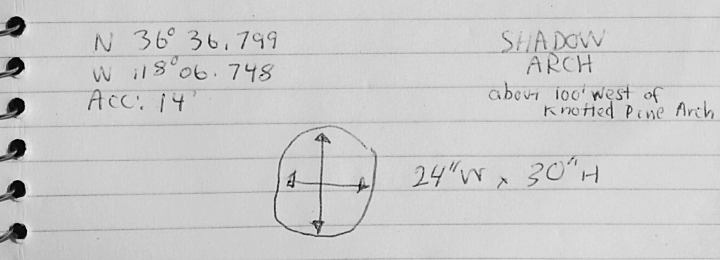 N 36° 36.799
W 118° 06.748
Acc: 14'
SHADOW
ARCH
about 100' west of
Knotted Pine Arch
24"W x 30"H